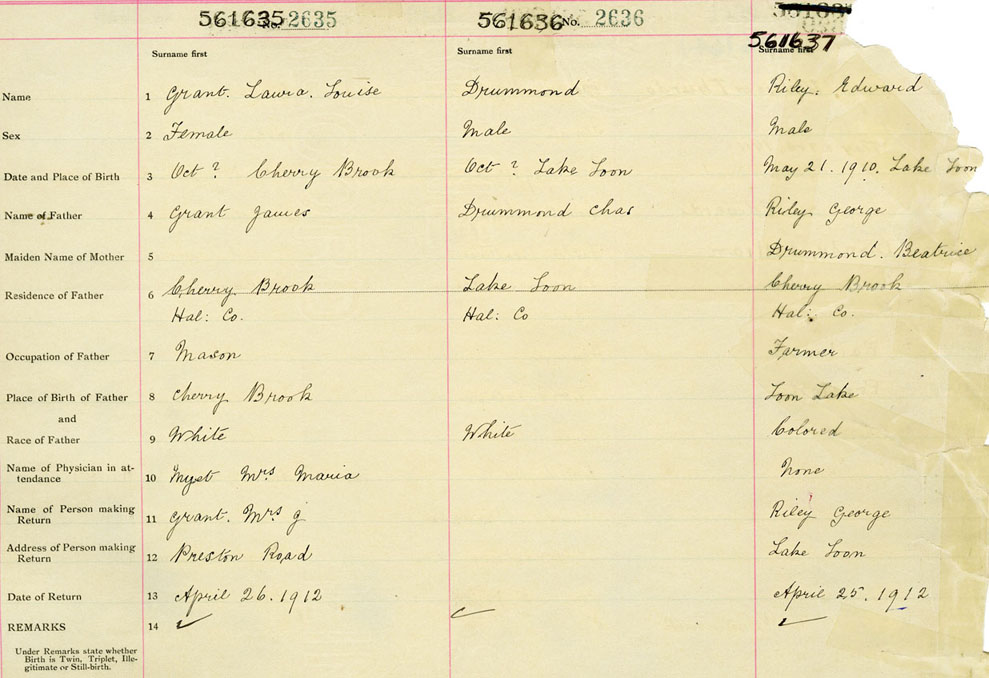 561635 No. 2635 561636 No. 2636
561637
Surname first Surname first Surname first
Name 1 Grant. Laura. Louise Drummond Riley. Edward
Sex 2 Female Male Male
Date and Place of Birth 3 Oct ? Cherry Brook Oct ? Lake Loon May 21. 1910. Lake Loon
Name of Father 4 Grant James Drummond Chas Riley George
Maiden Name of Mother 5 Drummond. Beatrice
Residence of Father 6 Cherry Brook Lake Loon Cherry Brook
Hal: Co. Hal: Co Hal: Co.
Occupation of Father 7 Mason Farmer
Place of Birth of Father 8 Cherry Brook Loon Lake
and
Race of Father 9 White White Colored
Name of Physician in at-
tendance 10 Mrs Maria None
Name of Person making
Return 11 Grant. Mrs J Riley George
Address of Person making
Return 12 Preston Road Lake Loon
Date of Return 13 April 26. 1912 April 25. 1912
REMARKS 14
Under Remarks state whether
Birth is Twin, Triplet, Ille-
gitimate or Still-birth.